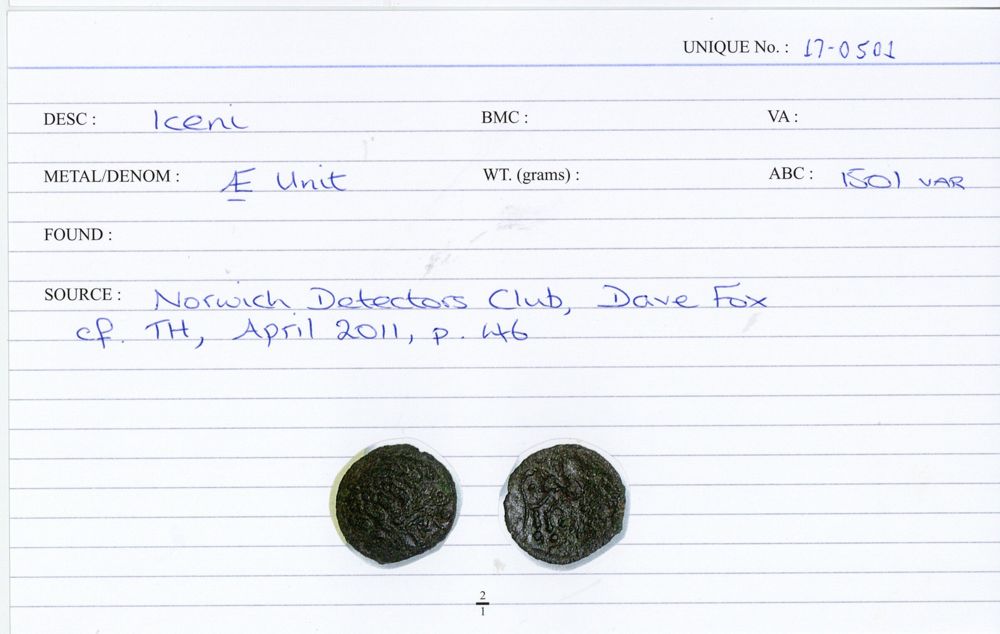 UNIQUE No. : 17-0501
DESC : Iceni BMC : VA :
METAL/DENOM : Æ Unit WT. (grams) : ABC : 1501 VAR
FOUND :
SOURCE : Norwich Detectors Club, Dave Fox
cf. TH, April 2011, p. 46
2
1